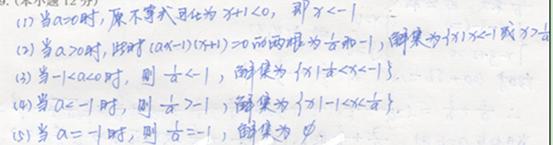 9.(本小题12分)
(1)当a=0时,原不等式可化为x+1<0,即x<-1
(2)当a>0时,此时(ax-1)(x+1)=0的两根为1/a和-1,解集为{x|x<-1或x>1/a
(3)当-1<a<0时,则1/a<-1,解集为{x|1/a<x<-1}
(4)当a<-1时,则1/a>-1,解集为{x|-1<x<1/a}.
(5)当a=-1时,则1/a=-1,解集为φ